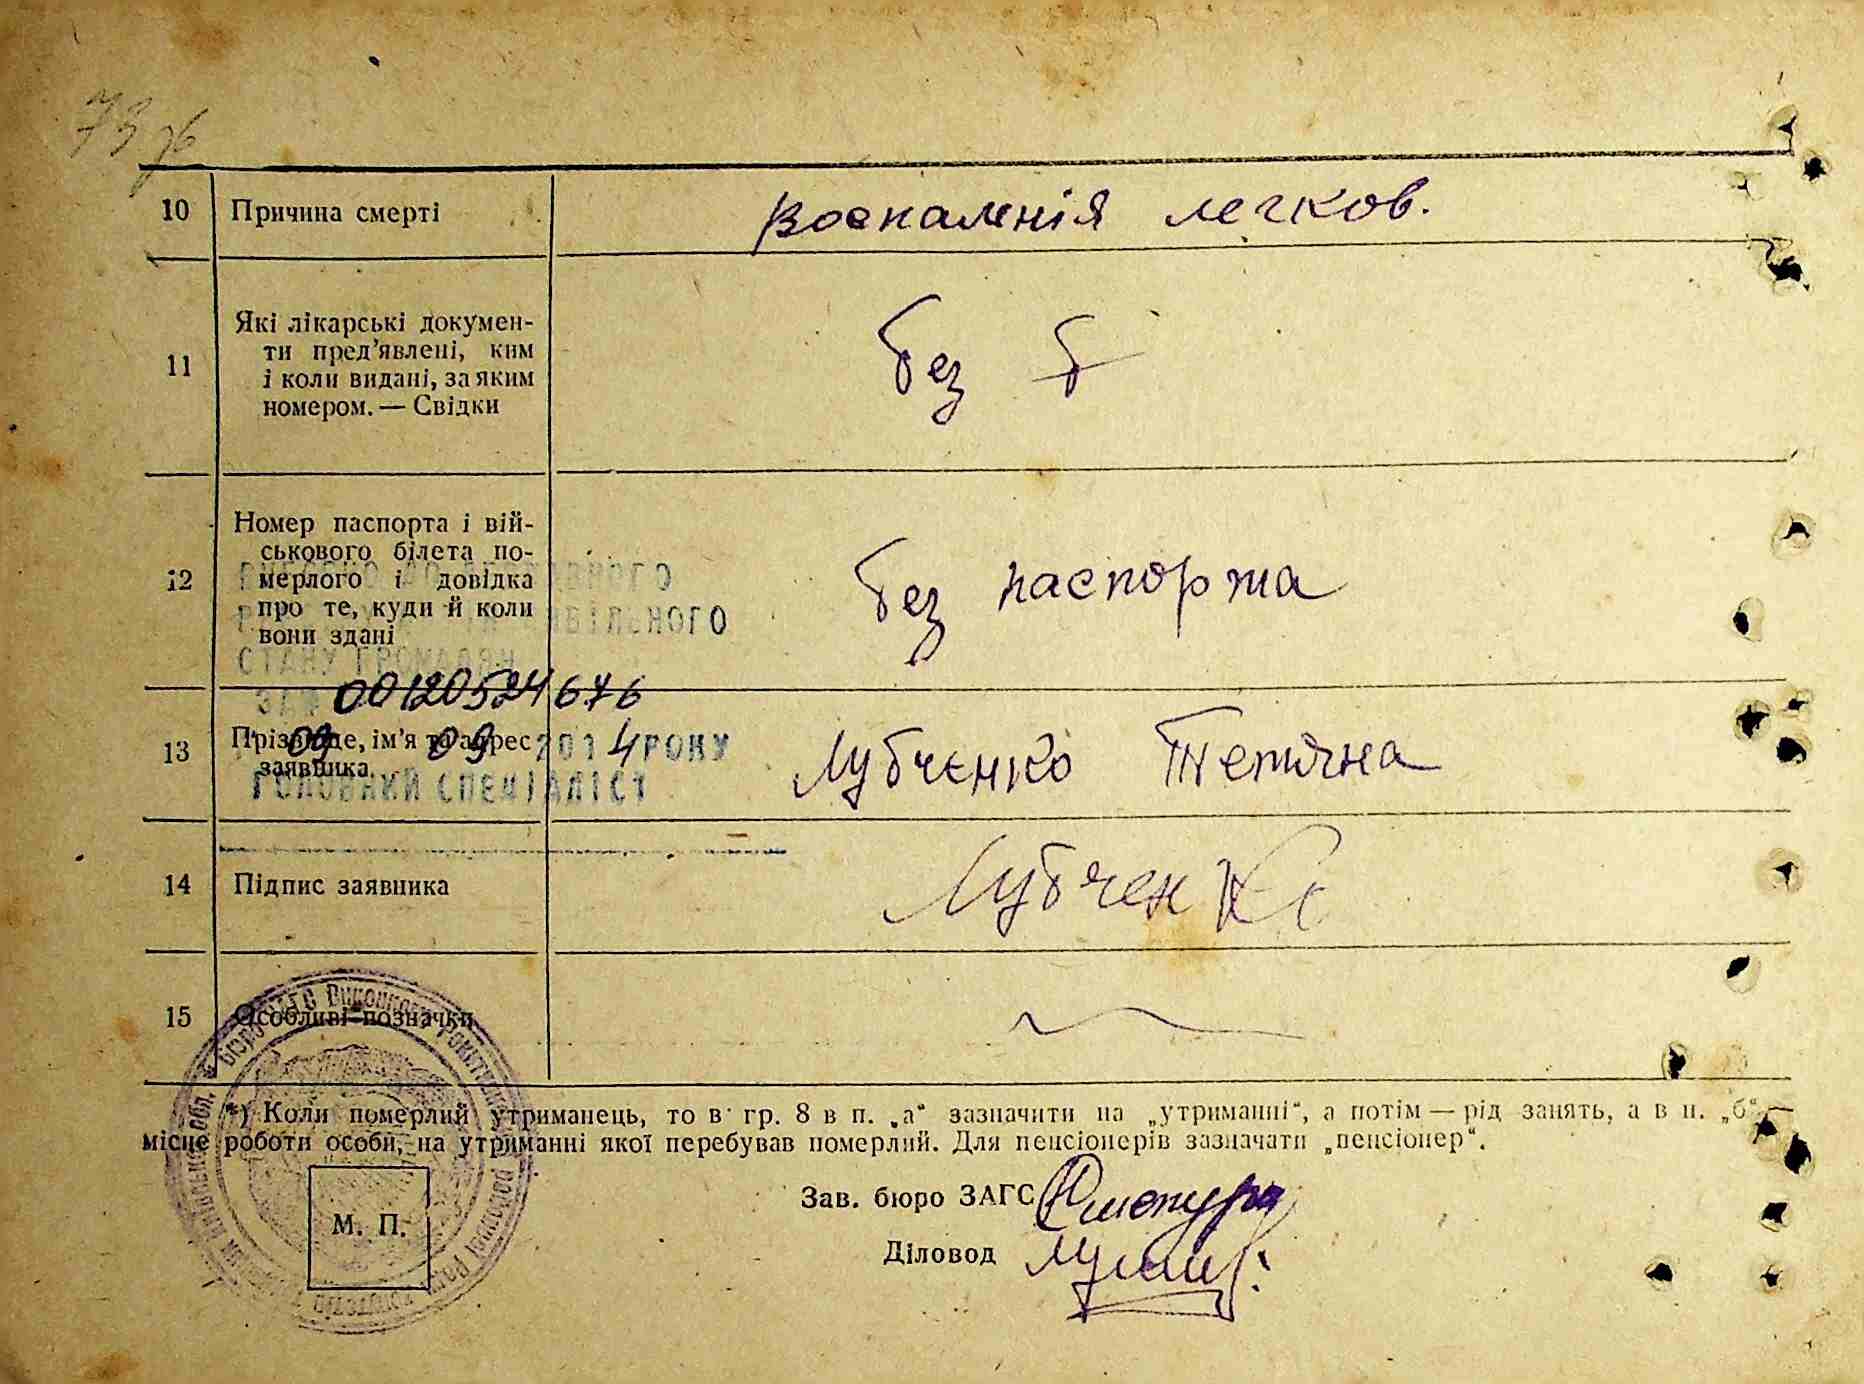 73 зб
10 Причина смерті воспаленія легков.
11 Які лікарські докумен-
ти пред'явлені, ким
і коли видані, за яким
номером. — Свідки
без б
12 Номер паспорта і вій-
ськового білета по-
мерлого і довідка
про те, куди й коли
вони здані
без паспорта
СТАНУ ГРОМАДЯН
00120524676
13 Прізвище, ім'я та адрес
заявника.
Лубченко Тетяна
09 09 2014 РОКУ
ГОЛОВНИЙ СПЕЦІАЛІСТ
14 Підпис заявника Лубченко
15 Особливі позначки
*) Коли померлий утриманець, то в гр. 8 в п. „а“ зазначити на „утриманні“, а потім — рід занять, а в п. „б“ —
місце роботи особи, на утриманні якої перебував померлий. Для пенсіонерів зазначати „пенсіонер“.
Зав. бюро ЗАГС
М. П.
Діловод